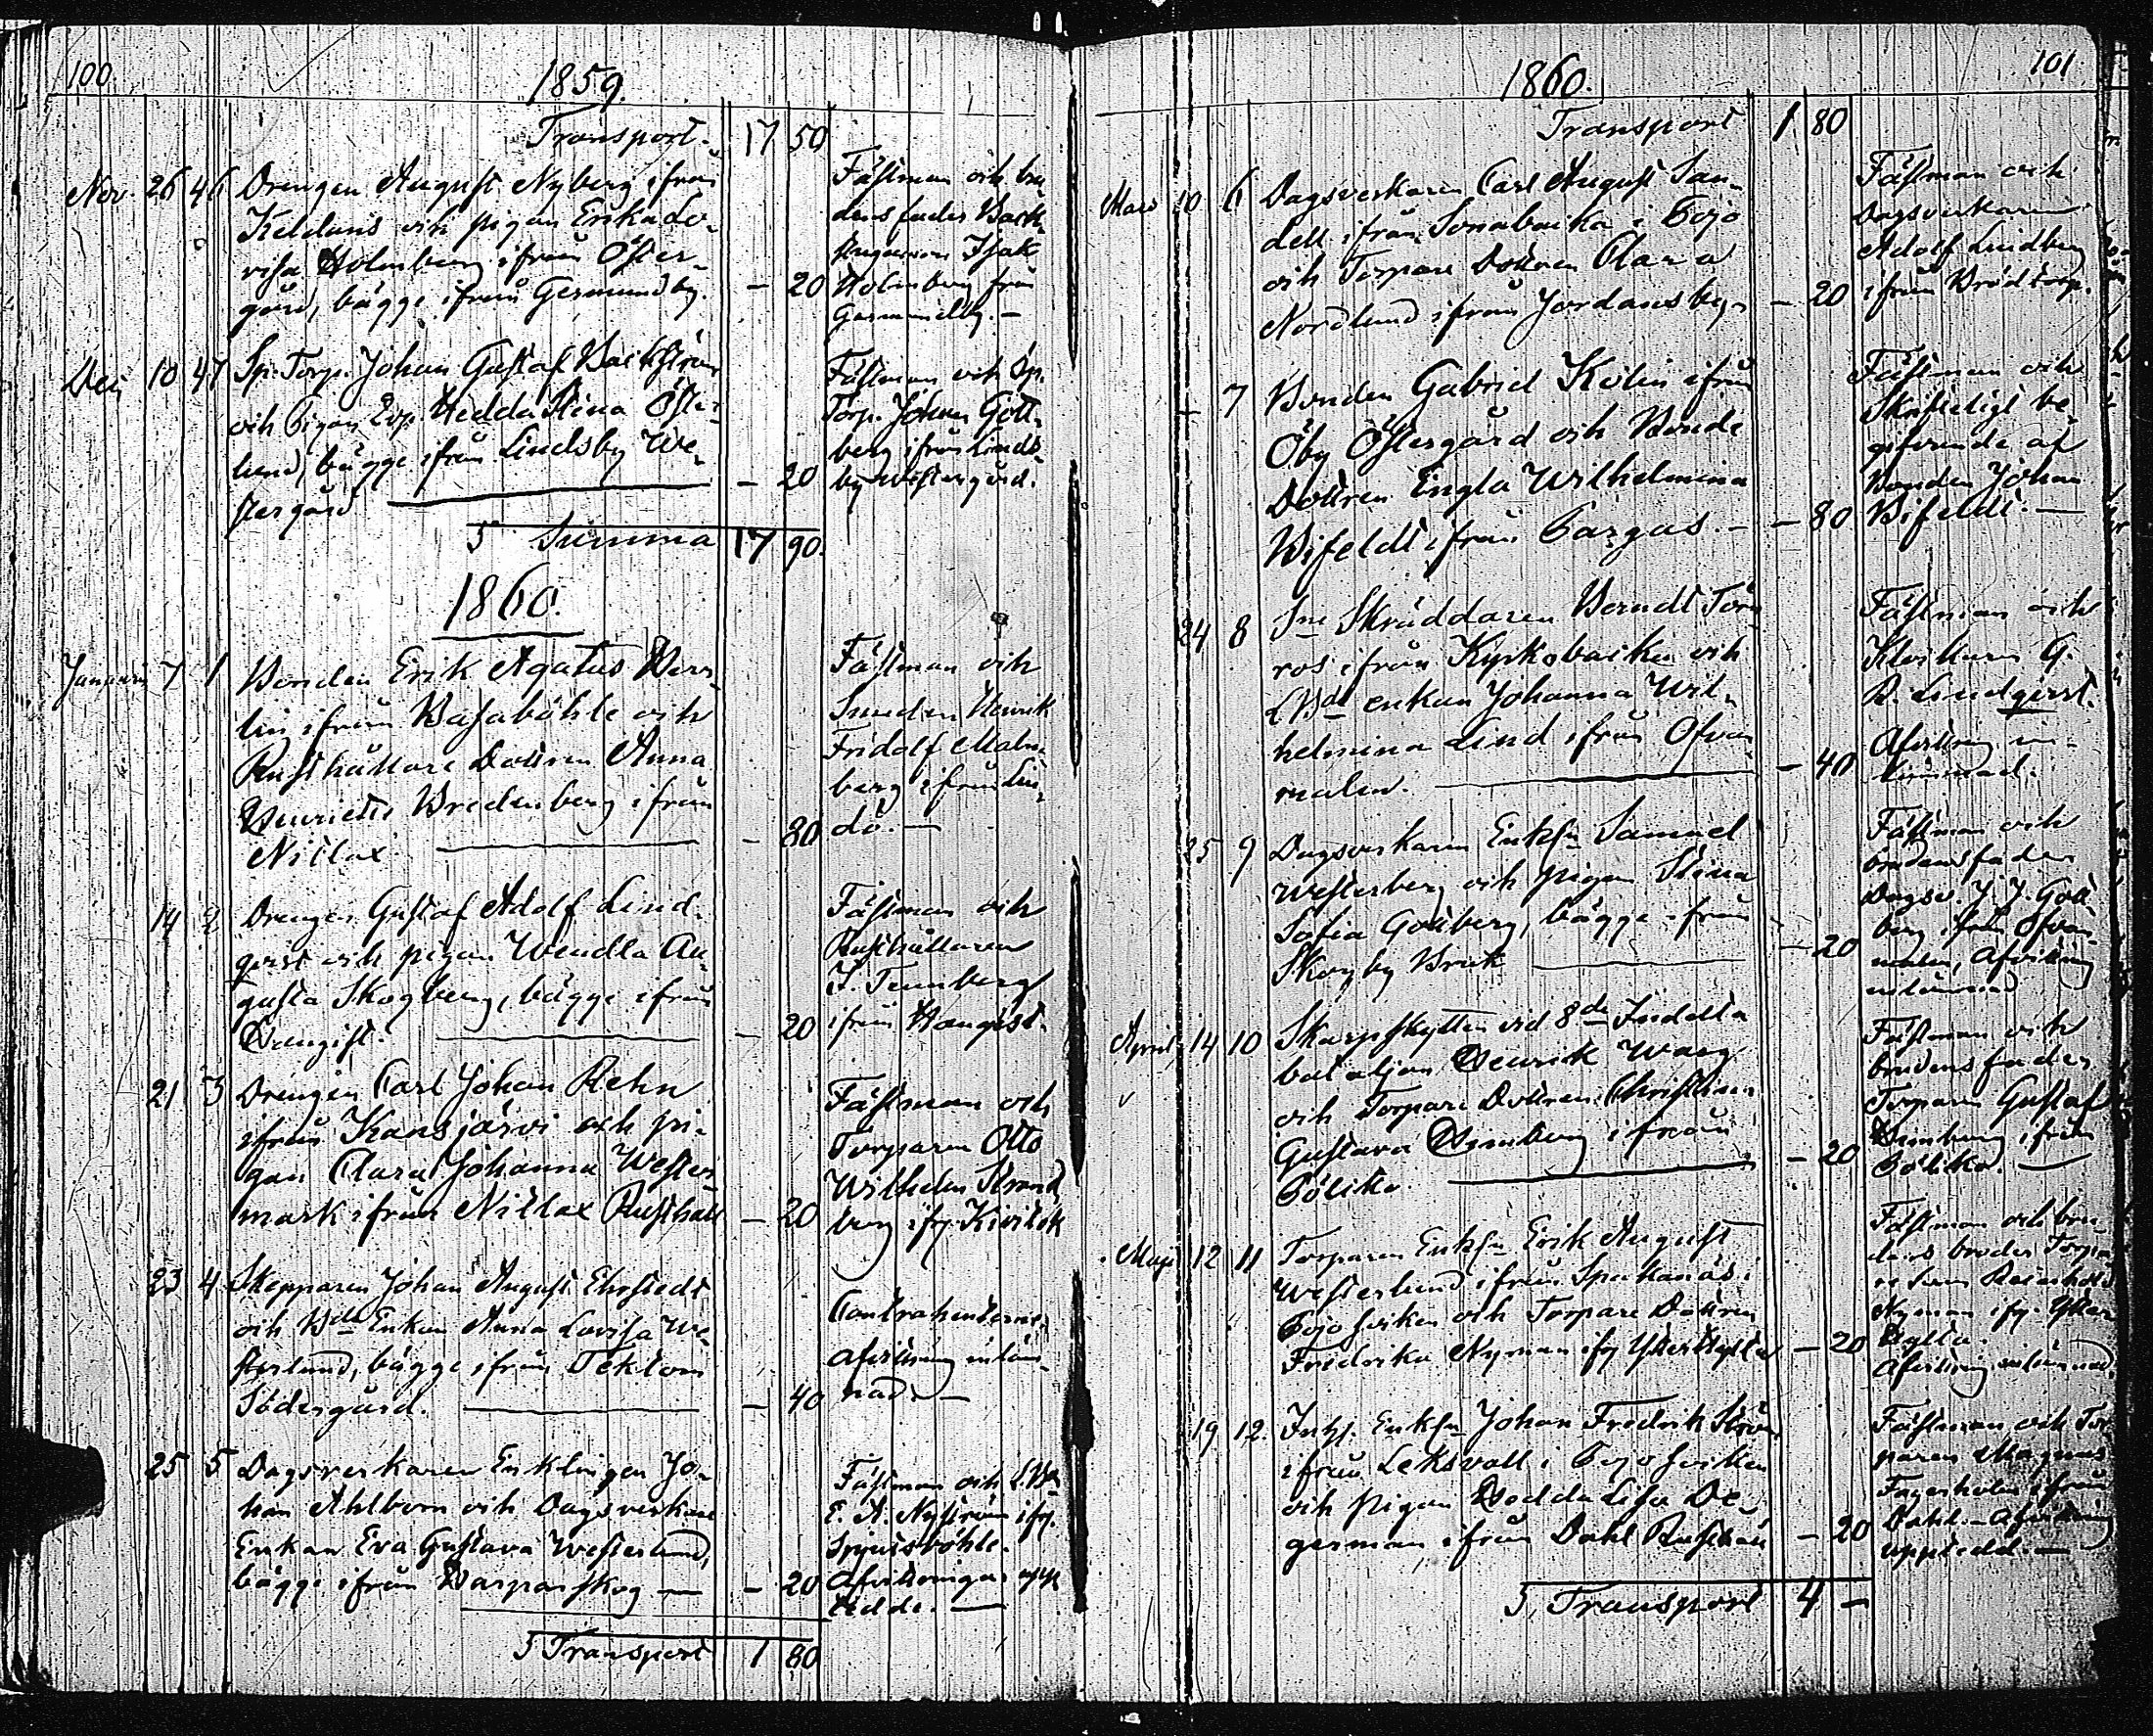 100.
1859.
Transport. 17 50
Nov. 26 46 Drengen August Nyberg ifrån
Keldanis och pigan Erika Lo-
visa Holmberg ifrån Öster-
gård, bägge ifrån Germundby. - 20
Fästman och bru
dens fader Back-
stugusven Isak
Holmberg från
Germundby. -
Dec 10 47 Sp. Torp. Johan Gustaf Backström
och Pigan Hedda Stina Öster-
lund, bägge ifrån Lindsby We-
stergård - 20
Fästman och Sp.
Torp. Johan Gott-
berg ifrån Linds-
by Westergård.
S Summa 17 90.
1860.
Januari 7 1 Bonden Erik Agatus
lin ifrån Wasaböhle och
Rusthållare Dottren Anna
Henrietta Bredenberg ifrån
Nillax - 80
Fästman och
Smeden Henrik
Fridolf Malm-
berg ifrån Lin-
dö. -
14 2 Drengen Gustaf Adolf Lind-
qvist och pigan Wendla Au-
gusta Skogberg, bägge ifrån
- 20
Fästman och
Rusthållaren
J. Tennberg
ifrån
21 3 Drengen Carl Johan Rehn
ifrån Kansjärvi och pi-
gan Clara Johanna Wester-
mark ifrån Nillax Rusthåll - 20
Fästman och
Torparen Otto
Wilhelm Strand-
berg ifr. Kivitok
23 4 Skepparen Johan August Ehrstedt
och Enkan Anna Lovisa We-
sterlund, bägge ifrån Tektom
Södergård. - 40
Contrahenterne,
Afvittring inläm-
nad. -
25 5 Dagsverkaren Enklingen Jo-
han Ahlbom och Dagsverkare
Enkan Eva Gustava Westerlund,
bägge ifrån Harparskog - - 20
Fästman och
E. A. Nyström ifr.
Spjutsböhle.
Afvittringar upp
tedde. -
S Transport 1 80
101
1860.
Transport 1 80
Mars 10 6 Dagsverkaren Carl August San-
dell ifrån Sonabacka i Pojo
och Torpare Dottren Clara
Nordlund ifrån Jordansby. - 20
Fästman och
Dagsverkaren
Adolf Lindberg
ifrån Brödtorp.
- 7 Bonden Gabriel Kolin ifrån
Öby Östergård och Bonde
Dottren Engla Wilhelmina
Wifeldt ifrån Pargas. - - 80
Fästman och
Skrifteligt be-
gifvande af
Bonden Johan
Wifeldt. -
24 8 Skräddaren Berndt Törn
ros ifrån Kyrkobacka och
enkan Johanna Wil-
helmina Lind ifrån Ofvan-
malm. - 40
Fästman och
Klockaren G.
R. Lindqvist.
Afvittring in-
lämnad.
25 9 Dagsverkaren Samuel
Westerberg och pigan Stina
Sofia Gottberg, bägge ifrån
Skogby Bruk - 20
Fästman och
brudens fader
Dagsv. J. J. Gott
berg ifrån Ofvan-
malm, Afvittring
inlämnad
April 14 10 Skarpskytten vid 8de Indelta
bataljon Henrik Warg
och Torpare Dottren Christina
Gustava ifrån
- 20
Fästman och
brudens fader
Torparen Gustaf
ifrån
Maji 12 11 Torparen Erik August
Westerlund ifrån Spakanäs i
Pojo socken och Torpare Dottren
Fredrika Nyman ifr Ytterkylla - 20
Fästman och bru-
dens broder Torpa-
re Son Reinhold
Nyman ifr. Ytter-
kylla.
Afvittring inlämnad
19 12. Johan Fredrik Ström
ifrån Leksvall i Pojo socken
och pigan Hedda Lisa De-
german ifrån Dahl Rusthåll - 20
Fästman och Tor
paren Magnus
Fagerholm ifrån
Dahl. - Afvittring
upptedd. -
S Transport 4 -